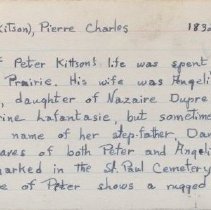 Kitson), Pierre Charles 183
f Peter Kittson's life was spent
Prairie. His wife was Angeli
, daughter of Nazaire Dupre
rine Lafantasie, but sometime
name of her step-father, Dav
aves of both Peter and Angeli
marked in the St. Paul Cemetery
e of Peter shows a rugged